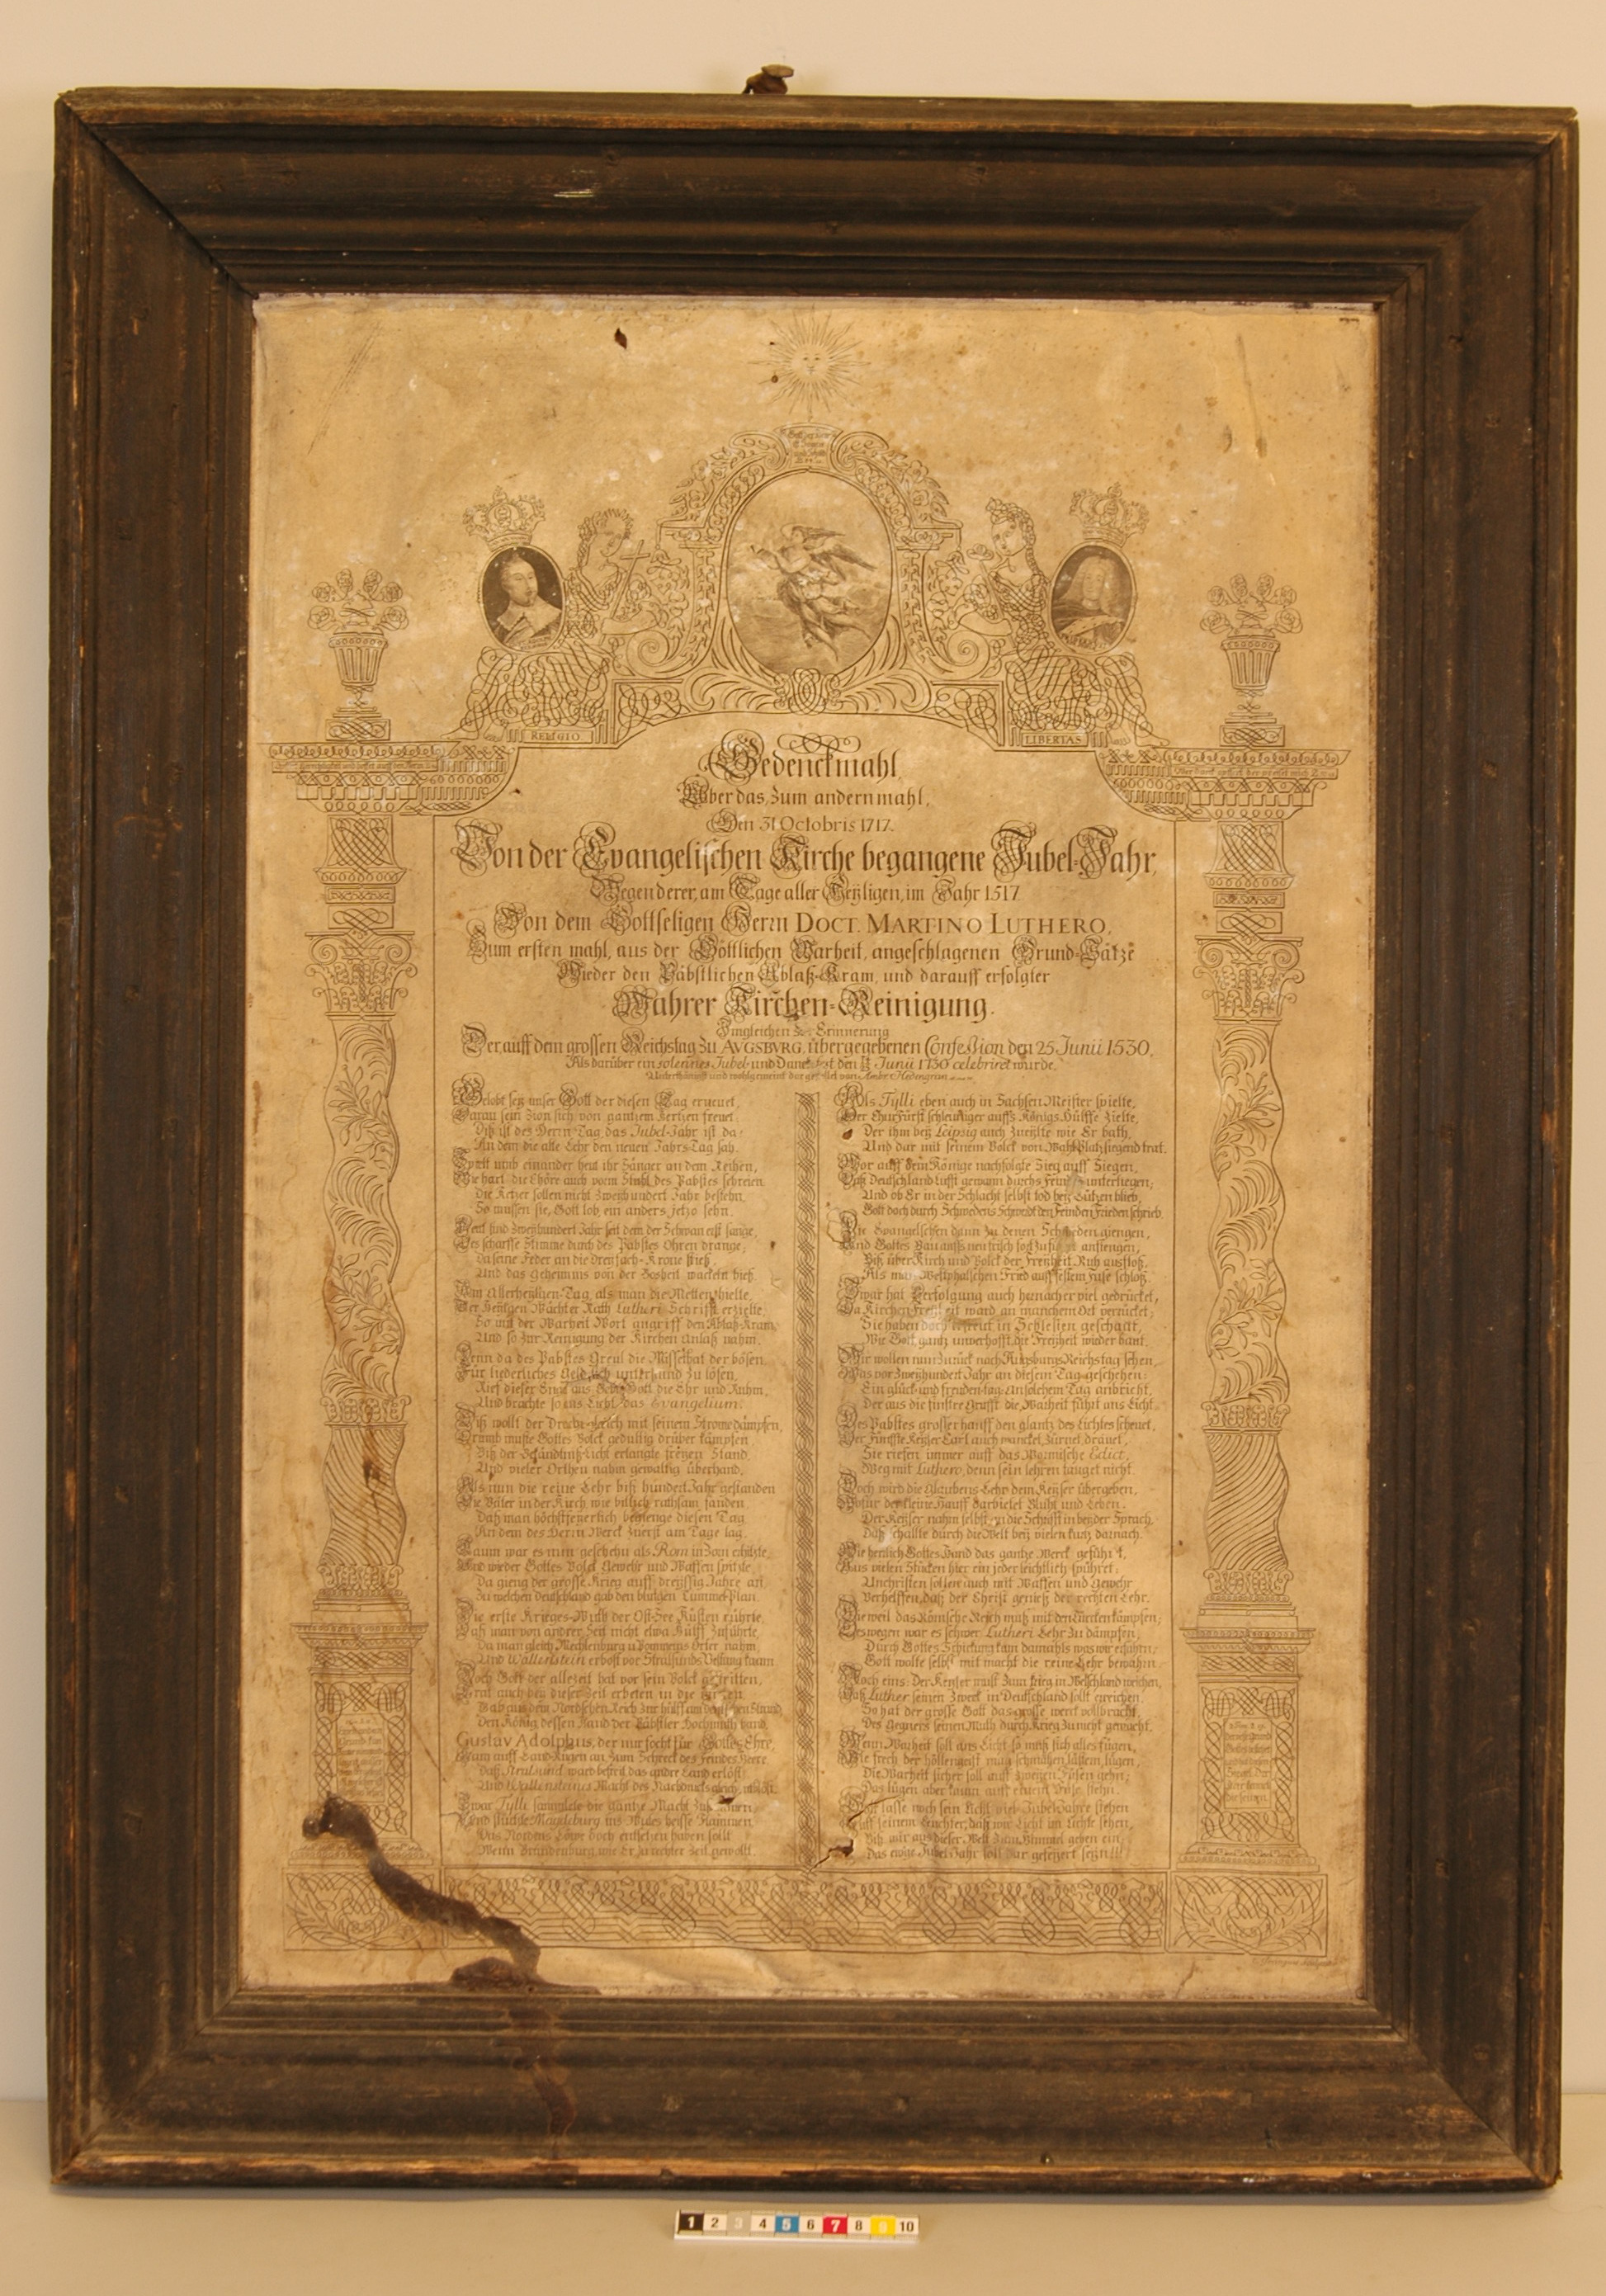 RELIGIO
LIBERTAS
Gedenckmahl
Über das, zum andern mahl,
Den 31 Octobris 1717.
Von der Evangelischen Kirche begangene Jubel-Jahr,
Wegen derer, am Tage aller Heyligen, im Jahr 1517
Von dem Gottseligen Herrn DOCT. MARTINO LUTHERO,
Zum ersten mahl, aus der Göttlichen Warheit, angeschlagenen Grund-Sätze
Wieder den Päbstlichen Ablaß-Kram, und darauff erfolgter
Wahrer Kirchen-Reinigung.
Imgleichen Erinnerung
Der, auff dem grossen Reichstag zu AVGSBVRG, übergegebenen Confession den 25 Junii 1530,
Als darüber ein solennes Jubel- und Danck-fest den Junii 1730 celebriret wurde,
Gelobt seÿ unser Gott der diesen Tag erneuet,
Daran sein Zion sich von gantzem Hertzen freuet
Diß ist des Herrn Tag, das Jubel-Jahr ist da;
An dem die alte Lehr den neuen Jahrs-Tag sah.
umb einander heut ihr Sänger an dem Reihen,
Wie hart die Chöre auch vorm Stuhl des Pabstes schreien
Die Ketzer sollen nicht Zweÿhundert Jahr bestehn
So müssen sie, Gott lob, ein anders jetzo sehn.
Heut sind Zweÿhundert Jahr seit dem der Schwan erst sange,
Des scharffe Stimme durch des Pabstes Ohren drange;
Da seine Feder an die Dreÿfach-Krone stieß
Und das Geheimnis von der Bosheit wackeln hieß
Am Allerheÿlgen-Tag, als man die Metten hielte,
Der Heÿlgen Wächter Rath Lutheri Schrifft erzielte,
So mit der Warheit Wort angriff den Ablaß-Kram,
Und so zur Reinigung der Kirchen Anlaß nahm.
Denn da des Pabstes Greul die Missethat der bösen,
Für liederliches Geld sich unterstund zu lösen,
Rieff dieser Engel aus Gebt Gott die Ehr und Ruhm,
Und brachte so ans Licht, das Evangelium.
Diß wollt der Drache gleich mit seinem Strome dämpfen,
Drumb muste Gottes Volck gedultig drüber kämpfen
Biß der Bekändtniß-Licht erlangte freÿen Stand
Und vieler Orthen nahm gewaltig überhand,
Als nun die reine Lehr biß hundert Jahr gestanden
Die Väter in der Kirch wie billich rathsam fanden
Daß man höchstfeÿerlich begienge diesen Tag
An dem des Herrn Werck zuerst am Tage lag.
Kaum war es nun geschehn als Rom in Zorn erhitzte,
Und wieder Gottes Volck Gewehr und Waffen spitzte,
Da gieng der grosse Krieg auff dreÿssig Jahre an
Zu welchen Deutschland gab den blutgen Tummel-Plan.
Die erste Krieges-Wuth der Ost-See Küsten rührte,
Daß man von andrer Seit nicht etwa Hülff zuführte,
Da man gleich Mechlenburg u Pommerns Örter nahm
Und Wallenstein erbost vor Stralsunds Vestung kam
Doch Gott der allezeit hat vor sein Volck gestritten,
Trat auch beÿ dieser Zeit erbeten in die
Gab aus dem Nordschen Reich zur Hülff am deutschen Strand
Den König dessen Hand der Päbstler Hochmuth band.
Gustav Adolphus, der nur focht für Gottes Ehre,
Kam auff Land Rügen an zum Schreck des Feindes Heere
Daß Stralsund ward befreit das andre Land erlöst
Und Wallensteins Macht des Nachdrucks gleich
Zwar Tylli sammlete die gantze Macht zusammen,
Und stürtzte Magdeburg ins Mides heisse Flammen,
Das Nordens Löwe hoch entsetzen haben sollt
Wenn Brandenburg wie Er zu rechter Zeit gewollt.
Als Tylli eben auch in Sachsen Meister spielte,
Der Churfürst schleuniger auffs Königs Hülffe zielte,
Der ihm beÿ Leipsig auch zueÿlte wie Er bath,
Und dar mit seinem Volck von Wahl-Platz siegend trat.
Wor auff dem Könige nachfolgte Sieg auff Siegen,
Daß Deutschland Lufft gewann durchs Feindes unterliegen;
Und ob Er in der Schlacht selbst tod beÿ Lützen blieb,
Gott doch durch Schwedens Schwerdt den Feinden Frieden schrieb.
Die Evangelschen dann zu denen Schweden giengen,
Und Gottes Bau auffs neu frisch fort anfiengen,
Biß über Kirch und Volck der Freÿheit Ruh ausfloß,
Als man Westphalschen Fried auff festem Fuse schloß.
Zwar hat Verfolgung auch hernacher viel gedrücket,
Da Kirchen Freÿheit ward an manchem Ort verrücket;
Sie haben doch befreit in Schlesien geschaut,
Wie Gott gantz unverhofft die Freÿheit wieder baut.
Wir wollen nun zurück nach Augsburgs Reichstag sehen,
Was vor Zweÿhundert Jahr an diesem Tag geschehen:
Ein glück und freuden-tag An solchem Tag anbricht,
Der aus die finstre Grufft die Warheit führt ans Licht.
Des Pabstes grosser hauff den glantz des Lichtes scheuet,
Der Fünffte Keÿser Carl auch wancket, zürnet, dräuet,
Sie riefen immer auff das Wormische Edict,
Weg mit Luthero, denn sein lehren tauget nicht.
Doch wird die Glaubens-Lehr dem Keÿser übergeben,
Wofür der kleine Hauff darbietet Bluht und Leben.
Der Keÿser nahm selbst an die Schrifft in beÿder Sprach,
Daß schallte durch die Welt beÿ vielen kurtz darnach.
Wie herrlich Gottes Hand das gantze Werck geführt,
Aus vielen Stücken hier ein jeder leichtlich spühret:
Unchristen sollen auch mit Waffen und Gewehr
Verhelffen, daß der Christ genieß der rechten Lehr.
Dieweil das Römsche Reich muß mit den Türcken kämpfen,
Deswegen war es schwer Lutheri Lehr zu dämpfen,
Durch Gottes Schickung kam damahls was wir erfahrn;
Gott wolte selbst mit macht die reine Lehr bewahrn.
Noch eins: Der Keÿser must zum krieg in Welschland weichen,
Daß Luther seinen Zweck in Deutschland sollt erreichen,
So hat der grosse Gott das grosse werck vollbracht,
Des Gegners seinen Muth durch Krieg zu nicht gemacht.
Wenn Warheit soll ans Licht so muß sich alles fügen,
Wie frech der höllengeist mag schmähen lästern, lügen,
Die Warheit sicher soll auff zweÿen Füsen gehn;
Das lügen aber kann auff einem Fuse stehn.
Gott lasse noch sein Licht viel Jubel-Jahre stehen
Auff seinem Leuchter, daß wir Licht im Lichte sehen,
Biß wir aus dieser Welt zum Himmel gehen ein;
Das ewge Jubel-Jahr soll dar gefeÿert seÿn!!!
1 2 3 4 5 6 7 8 9 10